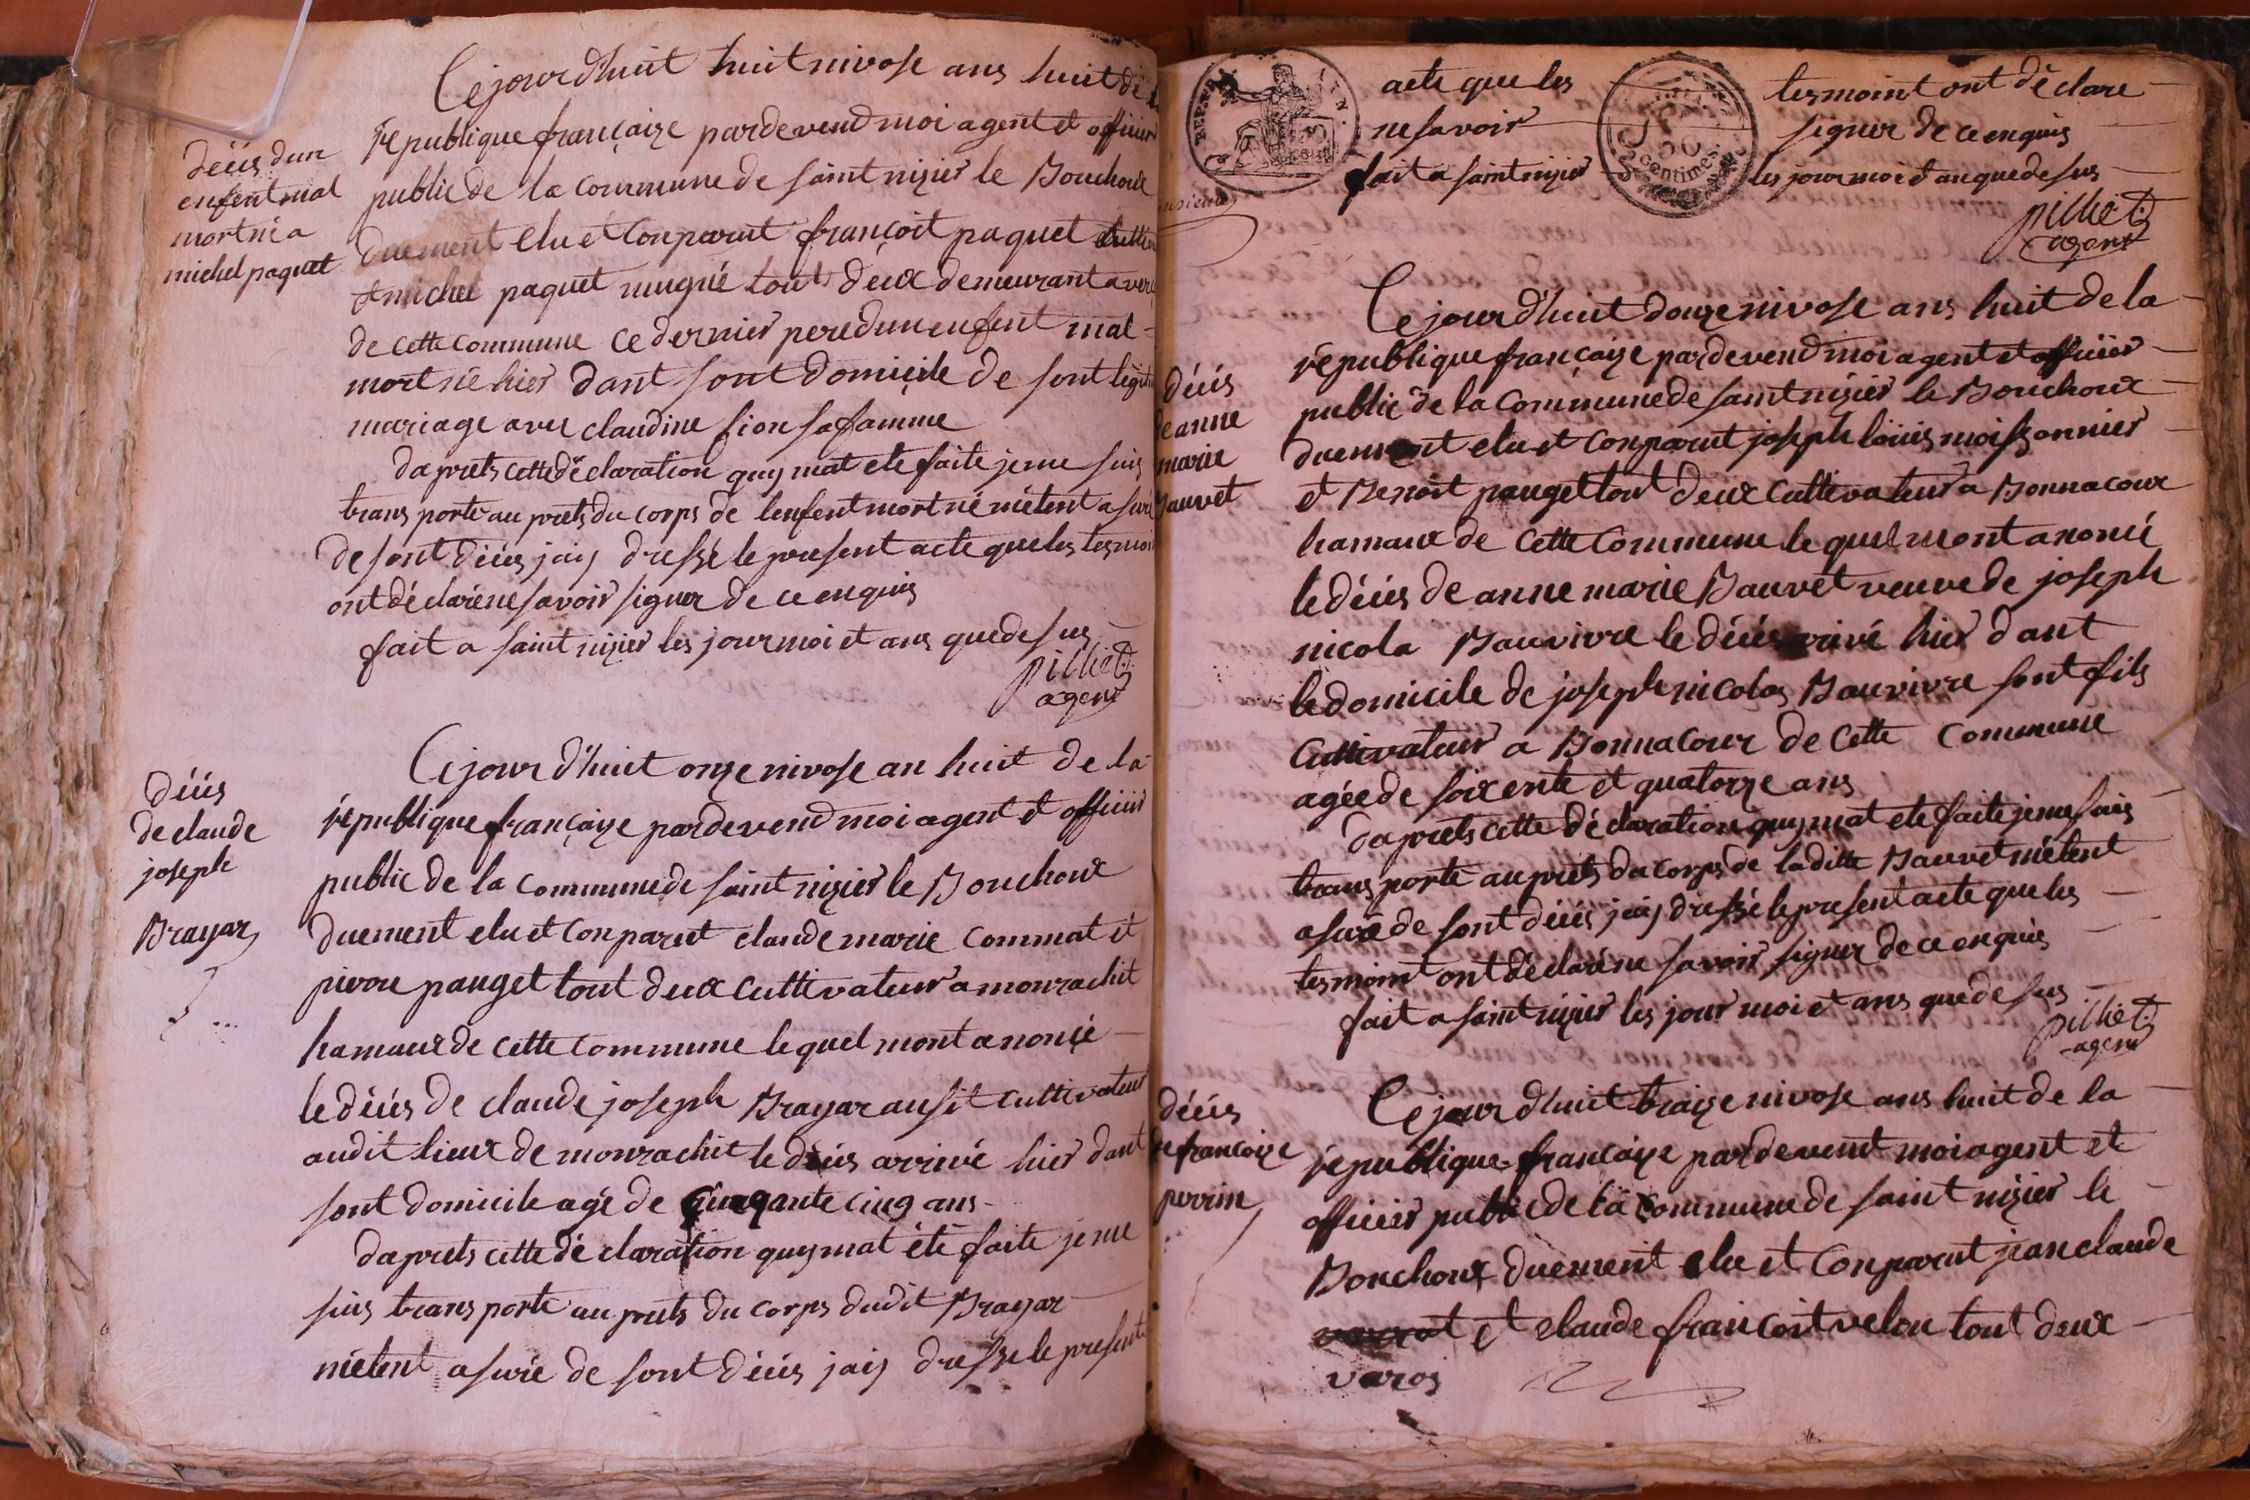 Cejourdhuit huit nivose ans huit de
republique françaize pardevend moi agent et officier
public de la commune de saint nizier le Bouchoux
duement elu et conparut françoit paquet
et michel paquet tout deux demeurant a
de cette commune ce dernier pere dun enfent mal
mort né hier dant sont domicile de sont legit
mariage avec claudine fion sa famme
daprets cette déclaration quy mat ete faite je me suis
trans porte au prets du corps de lenfent mort né métent asuré
de sont déces jaiy dressé le present acte que les tesmoi
ont déclaré ne savoir signer de ce enquis
fait a saint nizier les jour moi et ans que desus
pilliet
agent
déces dun
enfent mal
mort né a
michel paquet
Cejourdhuit onze nivose an huit de la
republique françaize pardevend moi agent et officier
public de la commune de saint nizier le Bouchoux
duement elu et conparut claude marie commat et
pierre pauget tout deux cultivateur a monrachit
hamaux de cette commune le quel mont anoncé
le déces de claude joseph Brayar ausit cultivateur
audit lieux de monrachit le déces arrivé hier dant
sont domicile agé de cinqante cinq ans
daprets cette dé claration quy mat été faite je me
suis trans porte au prets du corps dudit Brayar
métent asuré de sont déces jaiy dresse le present
déces
de claude
joseph
Brayar
acte que les tesmoint ont déclare
ne savoir signer de ce enquis
fait a saint nizier les jour moi et an que desus
pilliet
agent
centimes.
Cejourdhuit douze nivose ans huit de la
republique françaize pardevend moi agent et officier
public de la commune de saint nizier le Bouchoux
duement elu et conparut joseph loüis moissonnier
et Benoit pauget tout deux cultivateur a Bonnacour
hamaux de cette commune le quel mont anoncé
le déces de anne marie Bauvet veuve de joseph
nicola Bauvivre le déces arivé hier dant
le domicile de joseph nicolas Bauvivre sont fils
cultivateur a Bonnacour de cette commune
agée de soixente et quatorze ans
daprets cette dé claration quy mat ete faite je me suis
trans porte au prets du corps de la ditte Bauvet métent
asuré de sont déces jaiy dressé le present acte que les
tesmoint ont déclaré ne savoir signer de ce enquis
fait a saint nizier les jour moi et ans que desus
pilliet
agent
déces
de anne
marie
Bauvet
Cejourdhuit traize nivose ans huit de la
republique françaize pardevent moi agent et
officier public de la commune de saint nizier le
Bouchoux duement elu et conparut jean claude
et claude francoit velon tout deux
varos
déces
de francoize
perrin